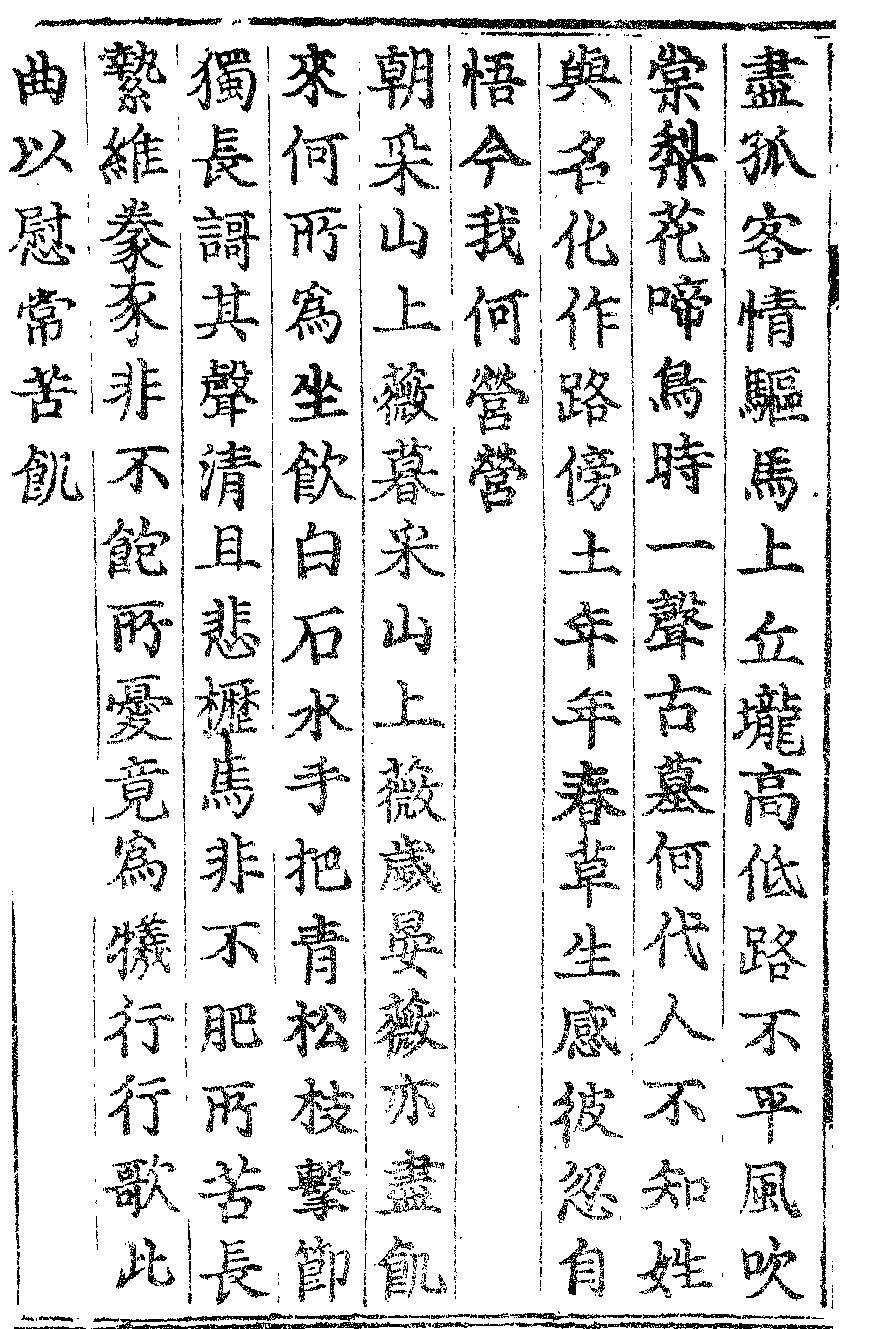 盡孤客情驅馬上丘壠高低路不平風吹
棠梨花啼鳥時一聲古墓何代人不知姓
與名化作路傍土年年春草生感彼忽自
悟今我何營營
朝采山上薇暮采山上薇歲晏薇亦盡飢
來何所爲坐飲白石水手把青松枝擊節
獨長謌其聲清且悲櫪馬非不肥所苦長
縶維豢豕非不飽所憂竟爲犧行行歌此
曲以慰常苦飢